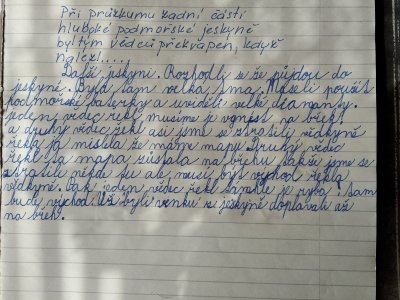 Při průzkumu zadní části
hluboké podmořské jeskyně
byl tým vědců překvapen, když
nalezl....
Další jeskyni. Rozhodli se že půjdou do
jeskyně. Byla tam velká tma. Museli použít
podmořské baterky a uviděli velké diamanty.
Jeden vědec řekl musíme je vynést na břeh
a druhý vědec řekl asi jsme se ztratili vědkyně
řekla já myslela že máme mapu druhý vědec
řekl ta mapa zůstala na břehu takže jsme se
ztratili někde tu ale musí být východ řekla
vědkyně. Pak jeden vědec řekl je ryba. Tam
bude východ. Už byli venku z jeskyně doplavali až
na břeh.